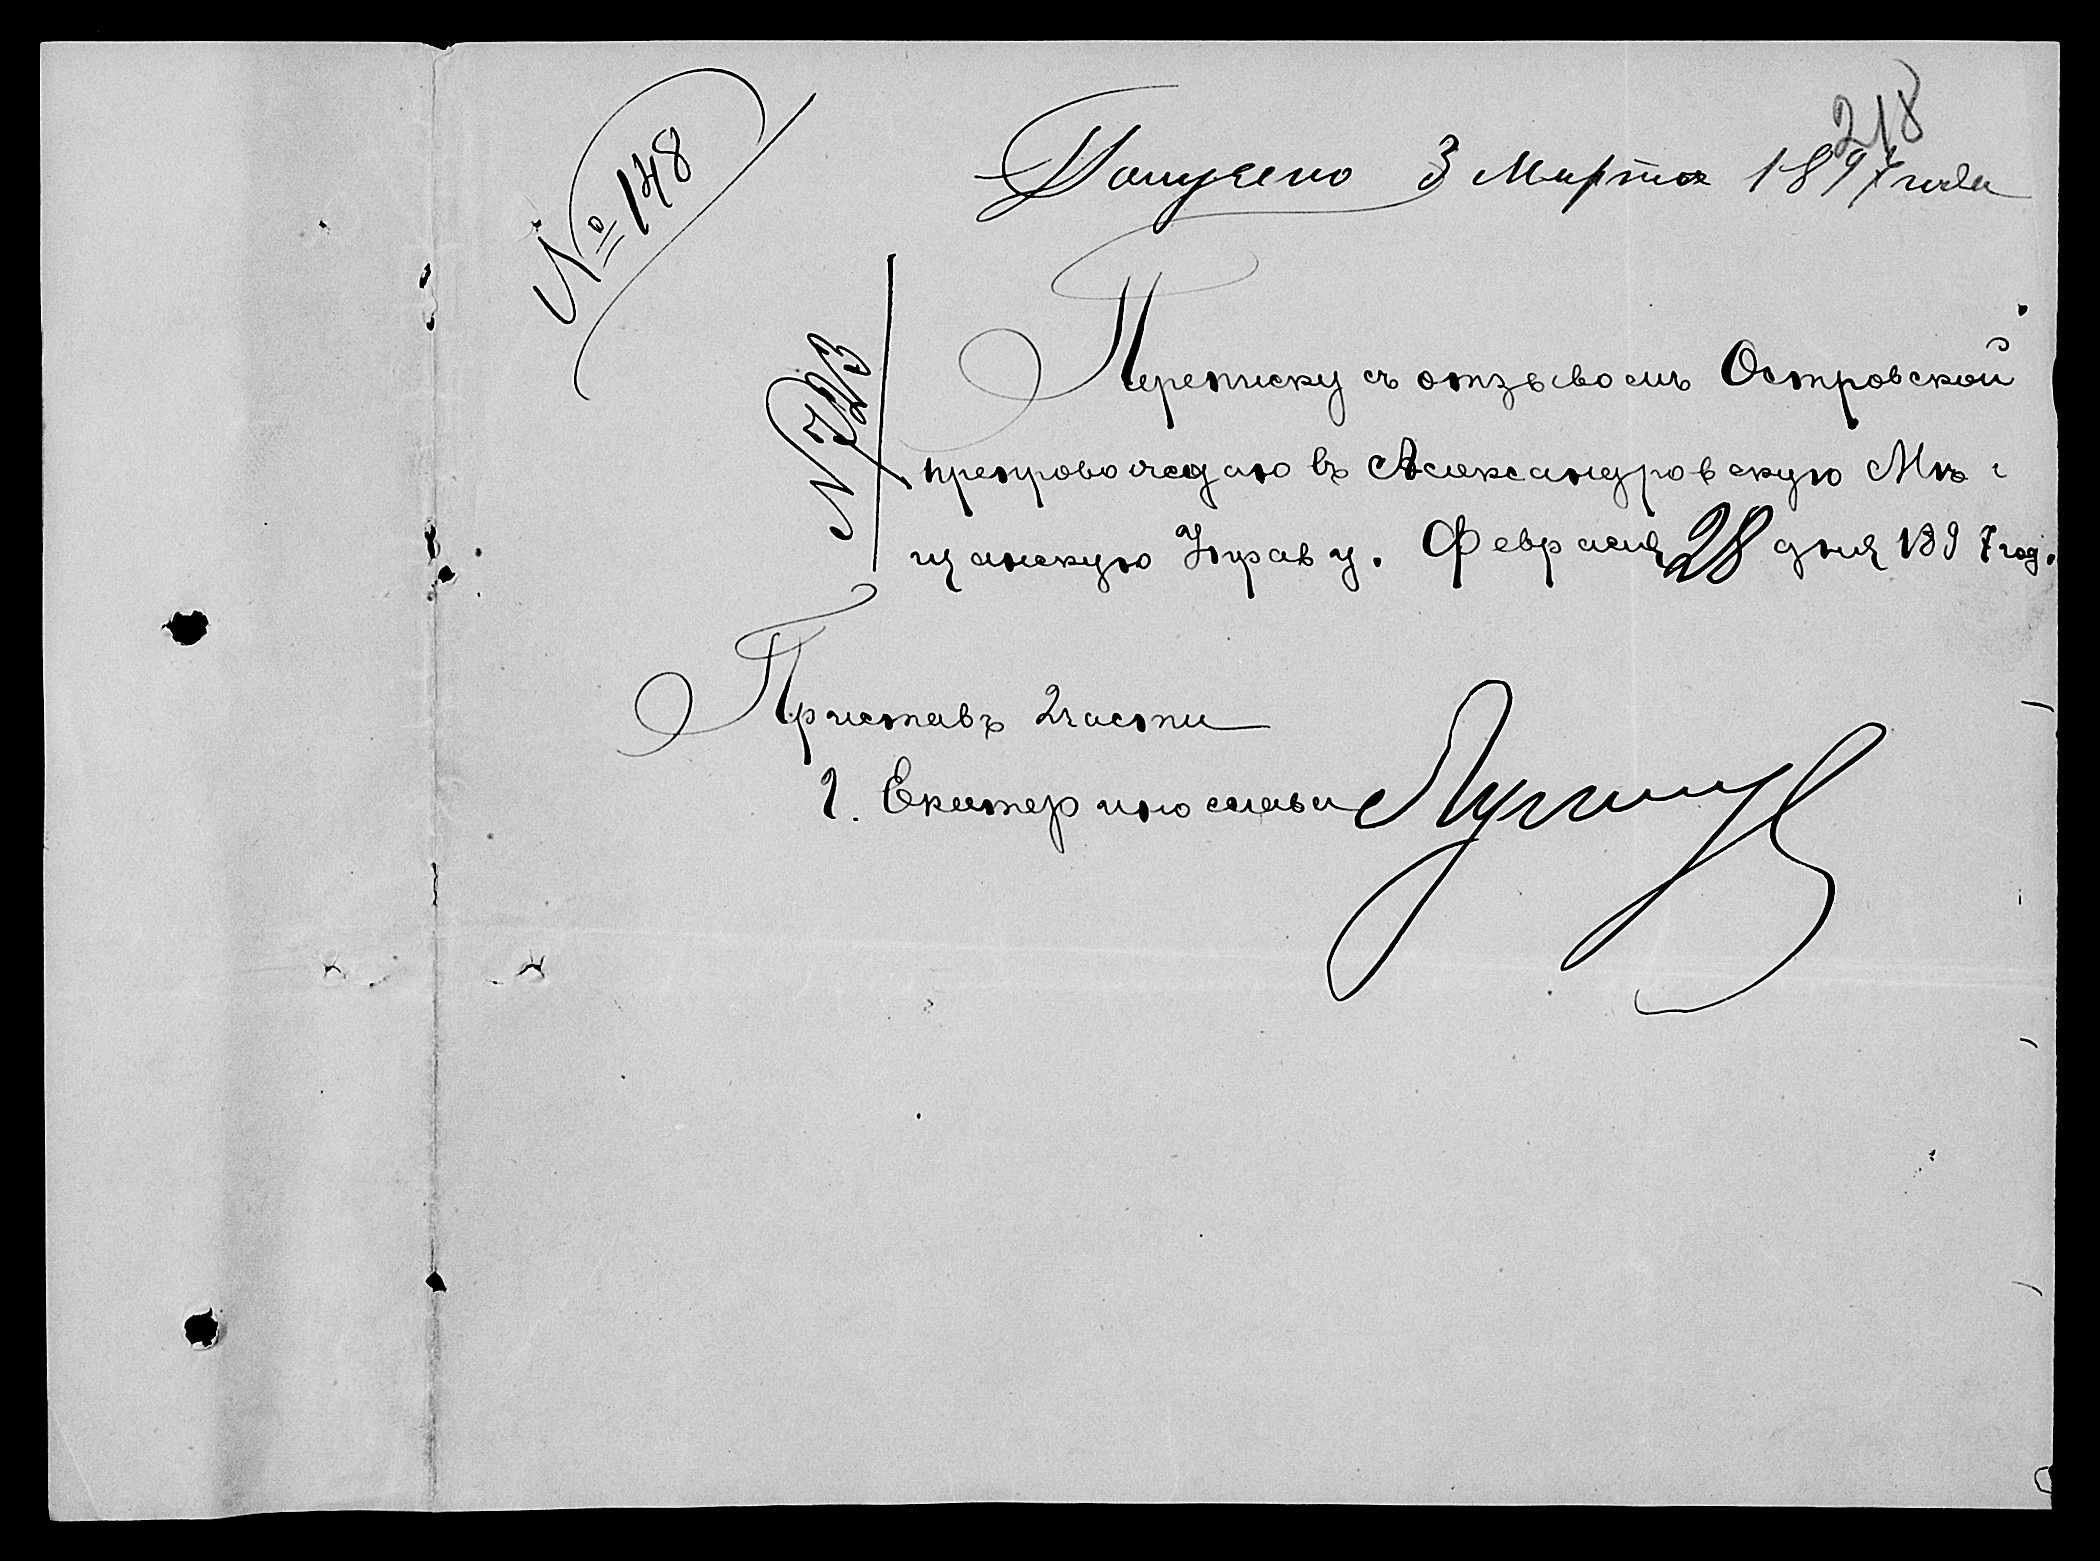 218
№ 148
Получено 3 Марта 1897 года
№ 723
Переписку съ отзывомъ Островской
препровождаю въ Александровскую Мѣ-
щанскую Управу. Февраля 28 дня 1897 год.
Приставъ 2 части
г. Екатеринослава